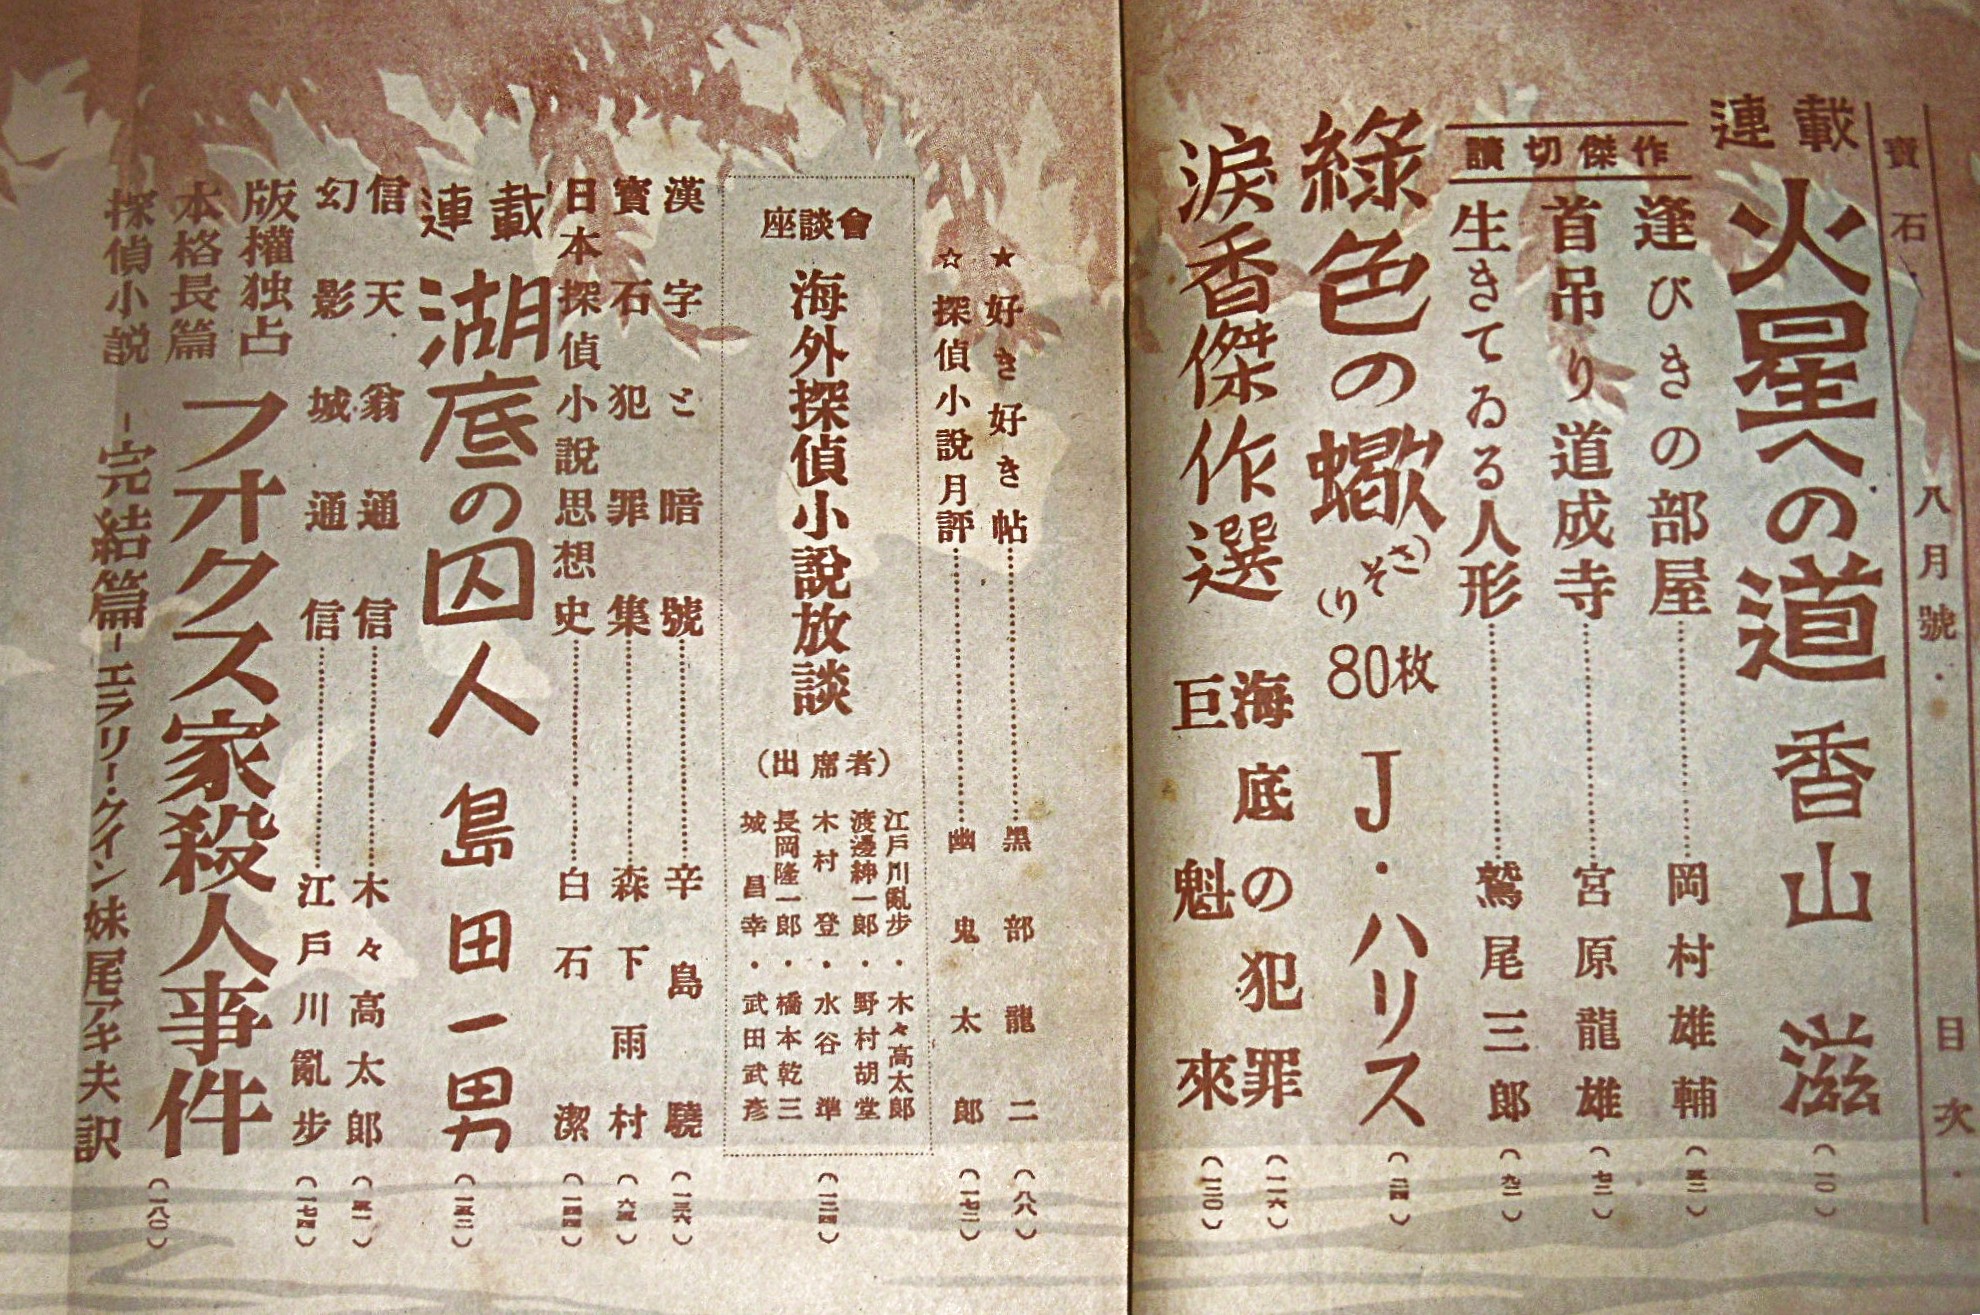 寶石・八月號・目次・
連載
火星への道 香山滋 (一〇)
讀切傑作
逢びきの部屋 岡村雄輔 (五二)
首吊り道成寺 宮原龍雄 (七二)
生きてゐる人形 鷲尾三郎 (九二)
綠色の蠍(さそり) 80枚 J・ハリス (二四)
淚香傑作選
海底の犯罪 (一一六)
巨魁來 (一二〇)
★好き好き帖 黑部龍二 (八八)
☆探偵小說月評 幽鬼太郎 (一七二)
座談會
海外探偵小說放談
(出席者)
江戶川亂步・木々高太郎
渡邊紳一郎・野村胡堂
木村登・水谷準
長岡隆一郎・橋本乾三
城昌幸・武田武彥
(一三四)
漢字と暗號 辛島驍 (一三六)
寶石犯罪集 森下雨村 (六五)
日本探偵小說思想史 白石潔 (一四四)
連載
湖底の囚人 島田一男 (一五二)
信天翁通信 木々高太郎 (五一)
幻影城通信 江戶川亂步 (一七四)
版權独占
本格長篇
探偵小説
フオクス家殺人事件 (一八〇)
-完結篇- エラリー・クイン 妹尾アキ夫訳